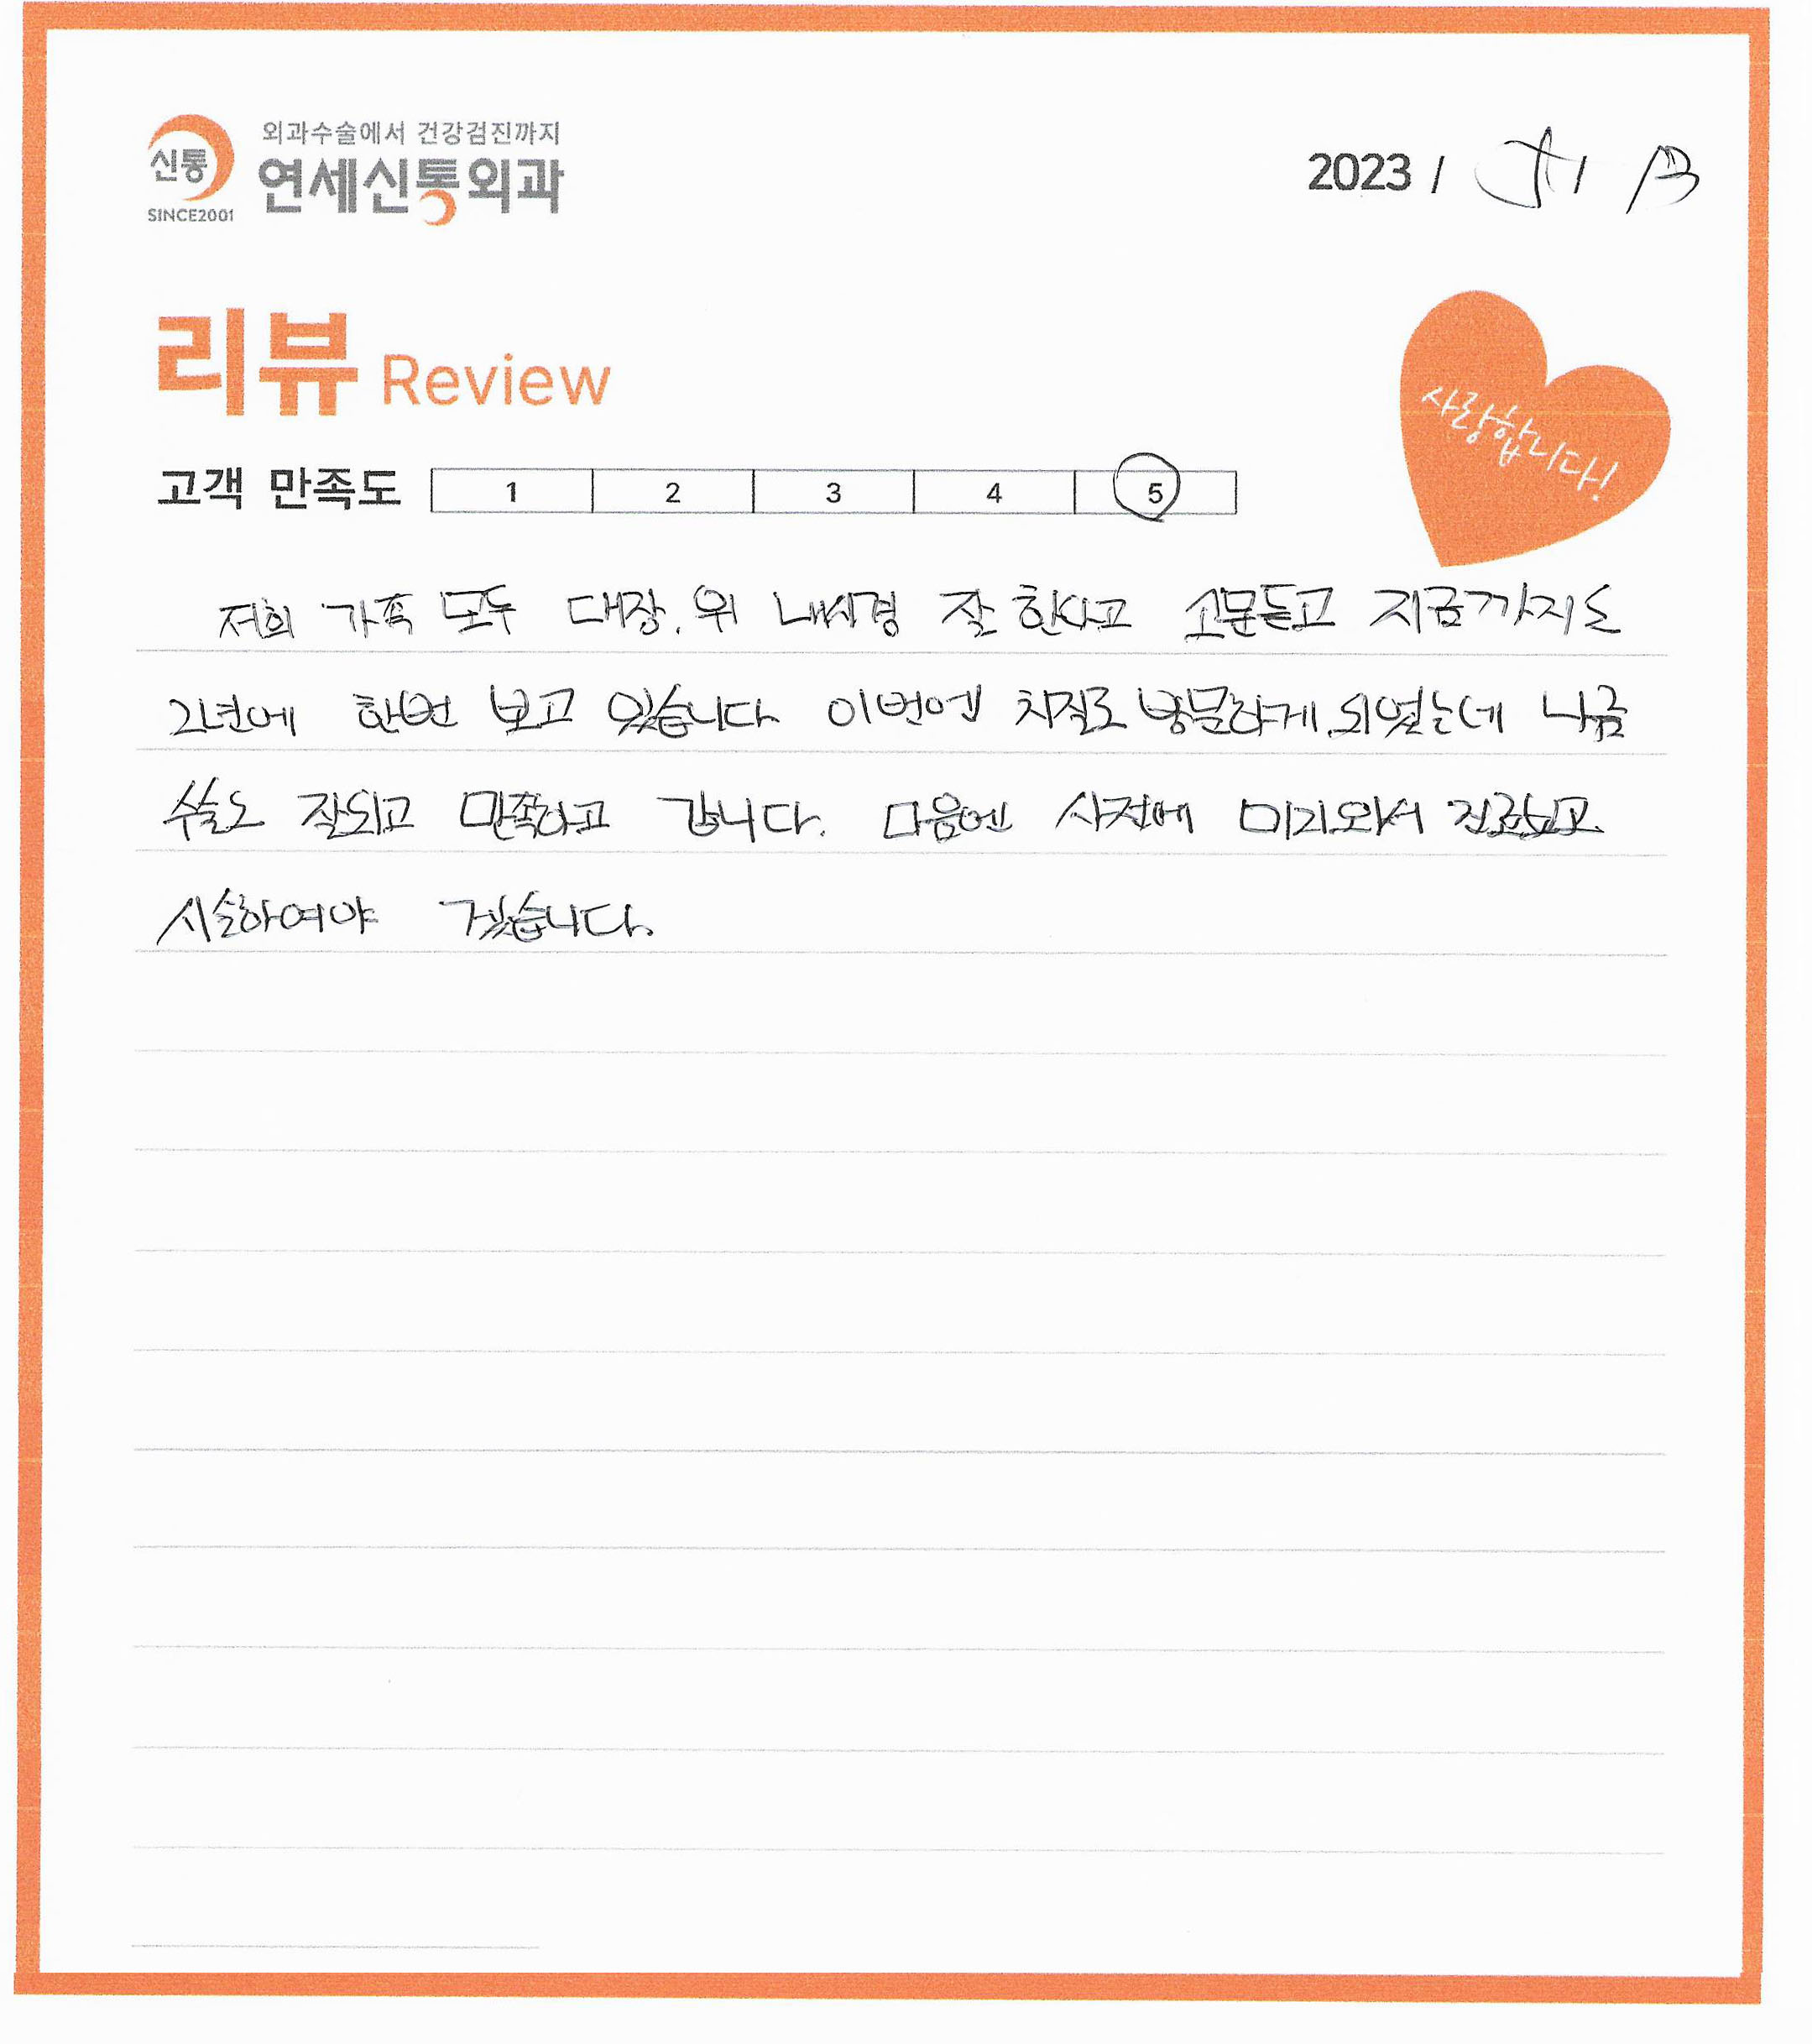 외과수술에서 건강검진까지
신통 연세신통외과
SINCE2001
2023 /
리뷰 Review
사랑합니다!
고객 만족도 1 2 3 4 5
저희 가족 모두 대장. 위 내시경 잘 한다고 소문듣고 지금까지도
2년에 한번 보고 있습니다. 이번엔 치질로 방문하게 되었는데
수술도 잘되고 만족하고 갑니다. 다음엔 사전에 미리와서 진료보고
시술하여야 겠습니다.